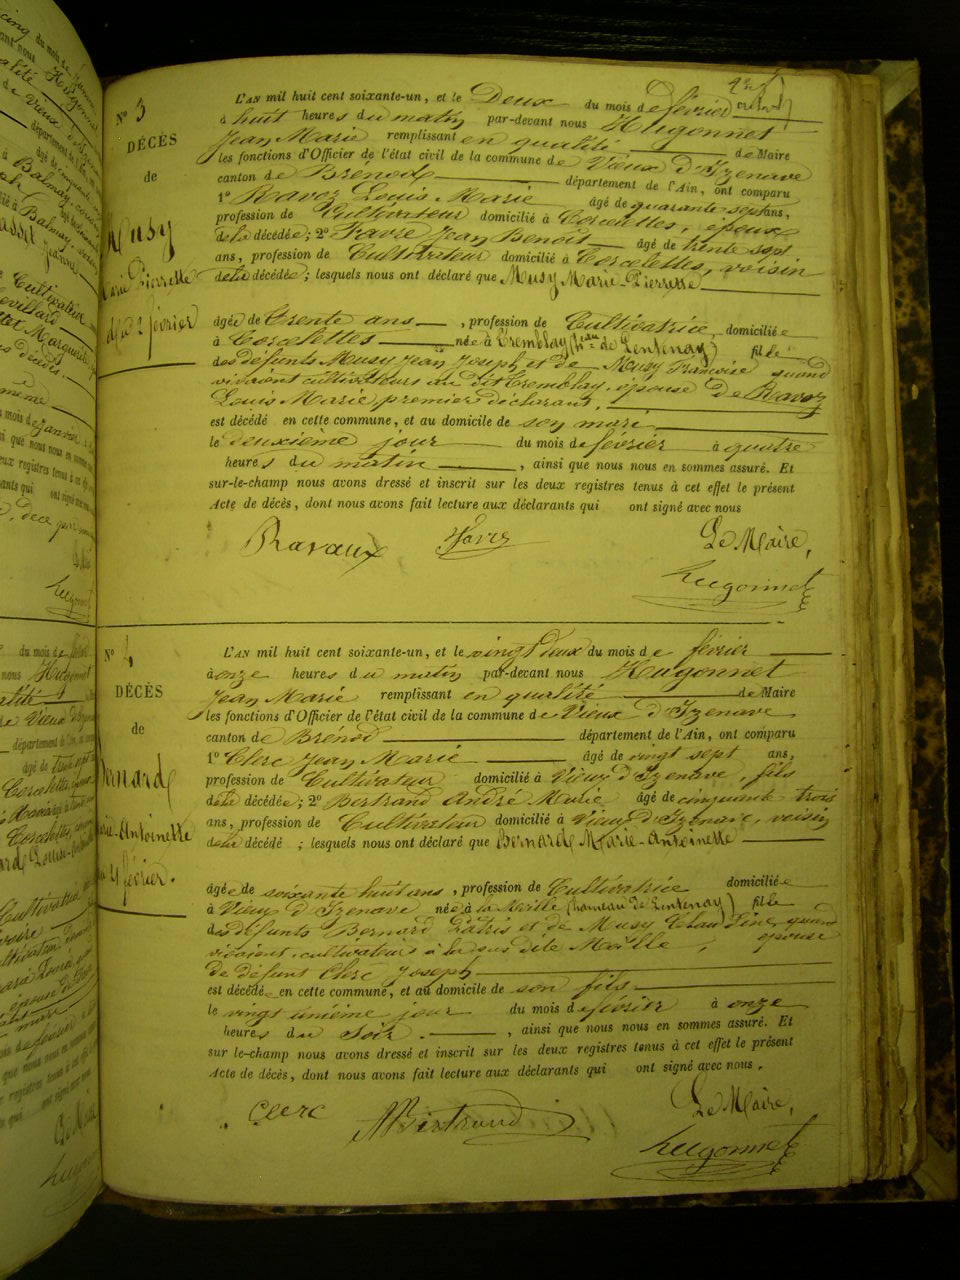 N° 3
DÉCÈS
de
Musy
Marie Pierrette
2 février
L'AN mil huit cent soixante-un, et le Deux du mois de février
à huit heures du matin par-devant nous Hugonnet
Jean Marie remplissant en qualité de Maire
les fonctions d'Officier de l'état civil de la commune de Vieux d'Izenave
canton de Brénod département de l'Ain, ont comparu
1° Ravoz Louis Marie âgé de quarante sept ans,
profession de Cultivateur domicilié à Corcelettes, époux
de la décédée; 2° Favre Jean Benoît âgé de trente sept
ans, profession de Cultivateur domicilié à Corcelettes, voisin
de la décédée; lesquels nous ont déclaré que Musy Marie-Pierrette
âgée de Trente ans, profession de Cultivatrice domiciliée
à Corcelettes née à Tremblay (heau de Lentenay) fille
des défunts Musy Jean Joseph et de Musy Françoise quand
vivaient cultivateurs au dit Tremblay, épouse de Ravoz
Louis Marie, premier déclarant,
est décédé en cette commune, et au domicile de son mari
le deuxième jour du mois de février à quatre
heures du matin, ainsi que nous nous en sommes assuré. Et
sur-le-champ nous avons dressé et inscrit sur les deux registres tenus à cet effet le présent
Acte de décès, dont nous avons fait lecture aux déclarants qui ont signé avec nous
Ravaux Favre Le Maire,
Hugonnet
N° 4
DÉCÈS
de
Bernard
Marie-Antoinette
février.
L'AN mil huit cent soixante-un, et le vingt deux du mois de février
à onze heures du matin par-devant nous Hugonnet
Jean Marie remplissant en qualité de Maire
les fonctions d'Officier de l'état civil de la commune de Vieux d'Izenave
canton de Brénod département de l'Ain, ont comparu
1° Clerc Jean Marie âgé de vingt sept ans,
profession de Cultivateur domicilié à Vieux d'Izenave, fils
de la décédée; 2° Bertrand André Marie âgé de cinquante trois
ans, profession de Cultivateur domicilié à Vieux d'Izenave, voisin
de la décédé; lesquels nous ont déclaré que Bernard Marie-Antoinette
âgée de soixante huit ans, profession de Cultivatrice domiciliée
à Vieux d'Izenave née à la Méville (hameau de Lentenay) fille
des défunts Bernard et de Musy Claudine, quand
vivaient, cultivateurs à la sus dite, épouse
de défunt Clerc Joseph
est décédée en cette commune, et au domicile de son fils
le vingt unième jour du mois de février à onze
heures du soir, ainsi que nous nous en sommes assuré. Et
sur le-champ nous avons dressé et inscrit sur les deux registres tenus à cet effet le présent
Acte de décès, dont nous avons fait lecture aux déclarants qui ont signé avec nous.
Clerc ABertrand Le Maire,
Hugonnet